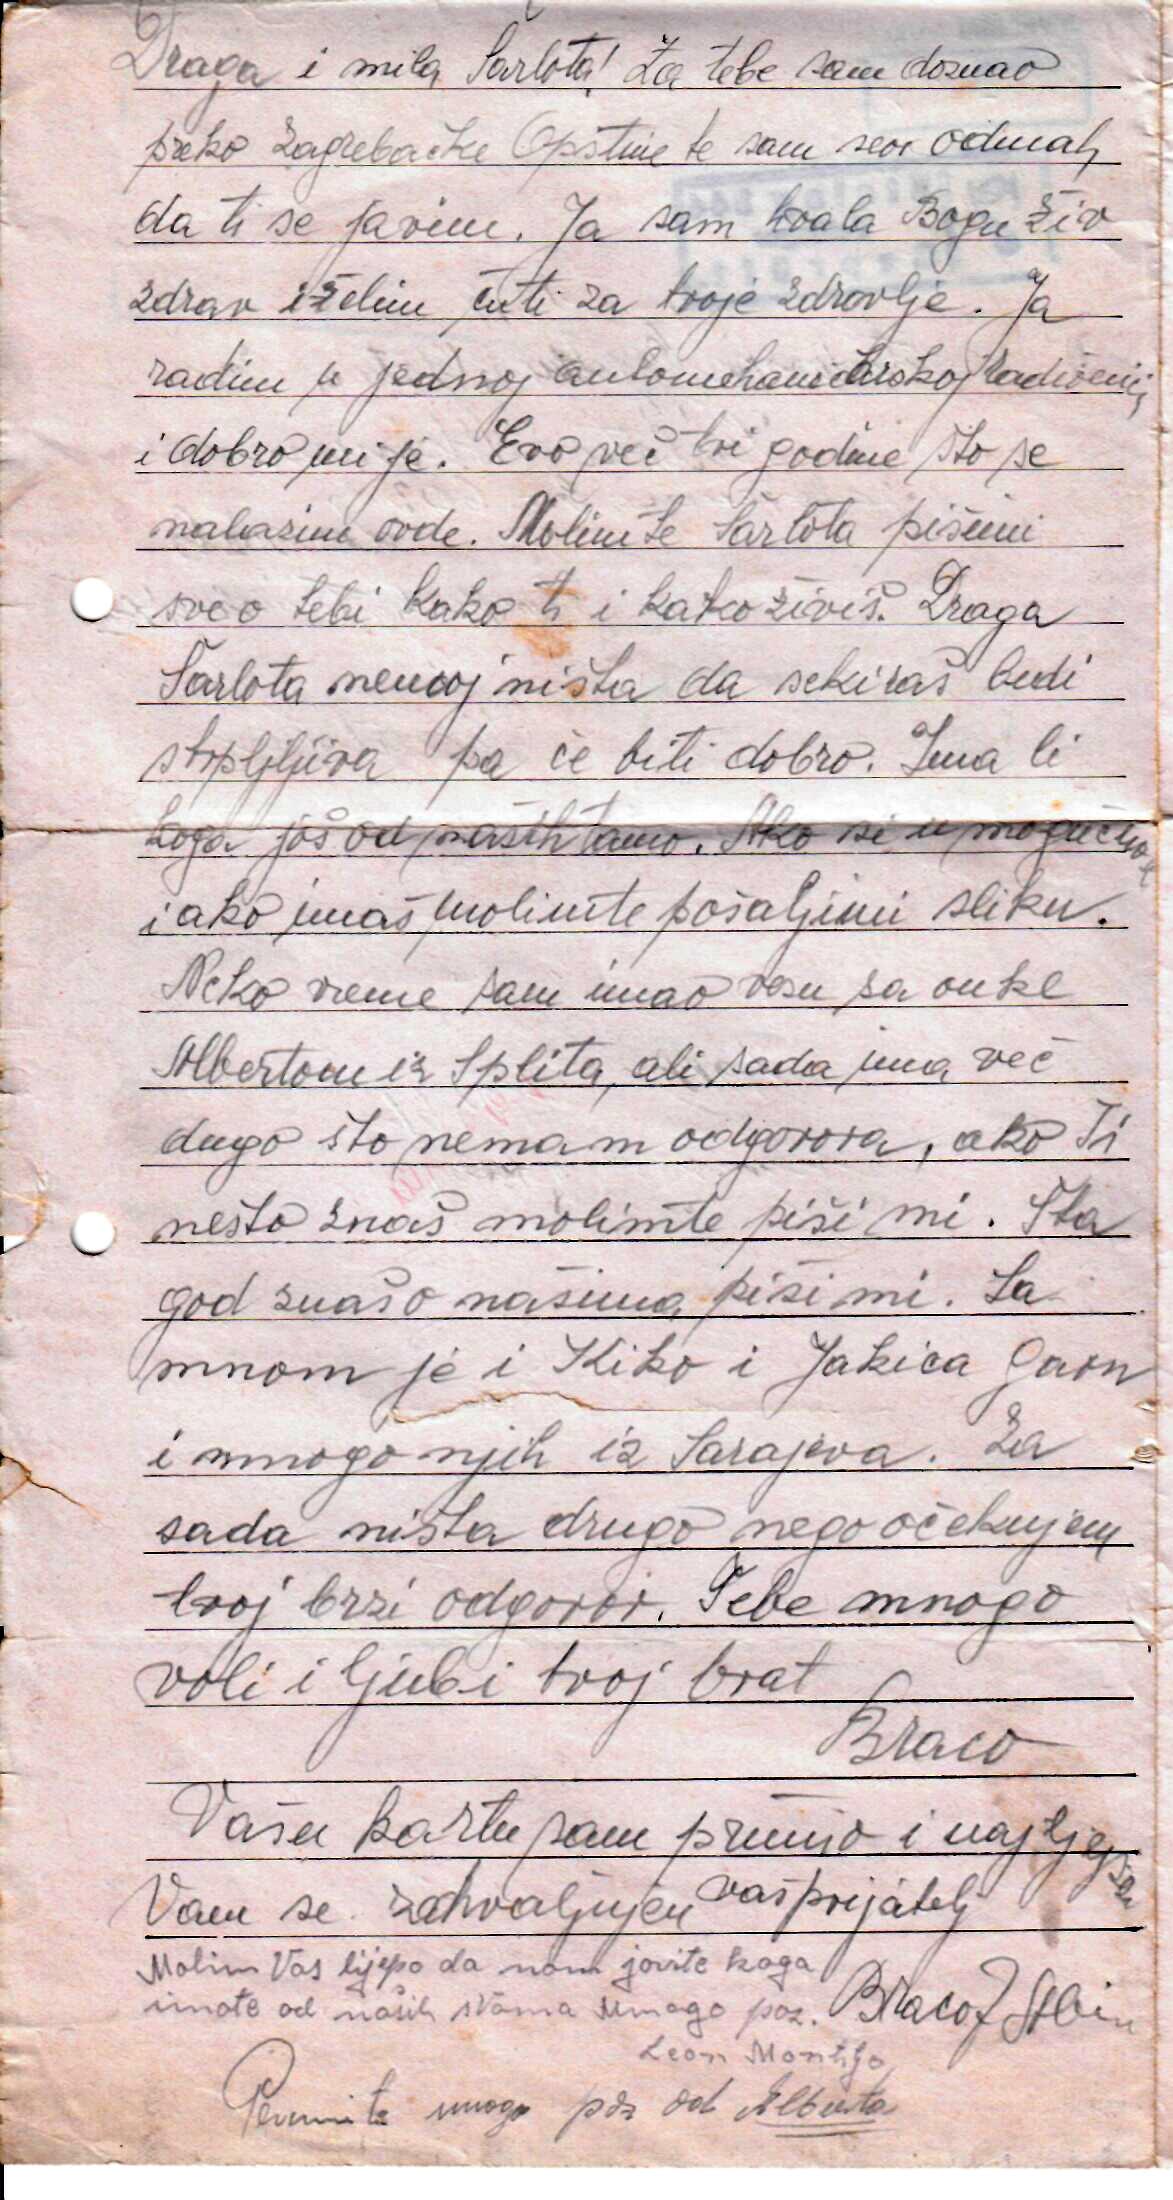 Draga i mila Šarlota! Za tebe sam doznao
preko Zagrebačke Opštine te sam seor odmah
da ti se javim. Ja sam hvala Bogu živ
zdrav i želim čuti za tvoje zdrovlje. Ja
radim u jednoj automehaničarskoj radionici
i dobro mi je. Evo već tri godine što se
nalazim ovde. Molim te Šarlota piši mi
sve o tebi kako ti i kako živiš. Draga
Šarlota nemoj ništa da sekiraš budi
strpljljiva pa će biti dobro. Ima li
koga još od naših tamo. Ako si u mogućnos
i ako imaš molimte pošalji mi sliku.
Neko vreme sam imao vezu sa onkl
Albertom iz Splita, ali sada ima već
dugo što nemam odgovora, ako Ti
nešto znaš molimte piši mi. Šta
god znaš o našima piši mi. Sa
mnom je i Kiko i Jakica Gaon
i mnogo njih iz Sarajeva. Za
sada ništa drugo nego očekujem
tvoj brzi odgovor. Tebe mnogo
voli i ljubi tvoj brat
Braco
Vašu kartu sam primio i najljepše
Vam se zahvaljujem vaš prijatelj
Molim Vas lijepo da nam javite koga
imate od naših s Vama Mnogo poz. Braco
Leon Montiljo
Primite mnogo poz od Alberta